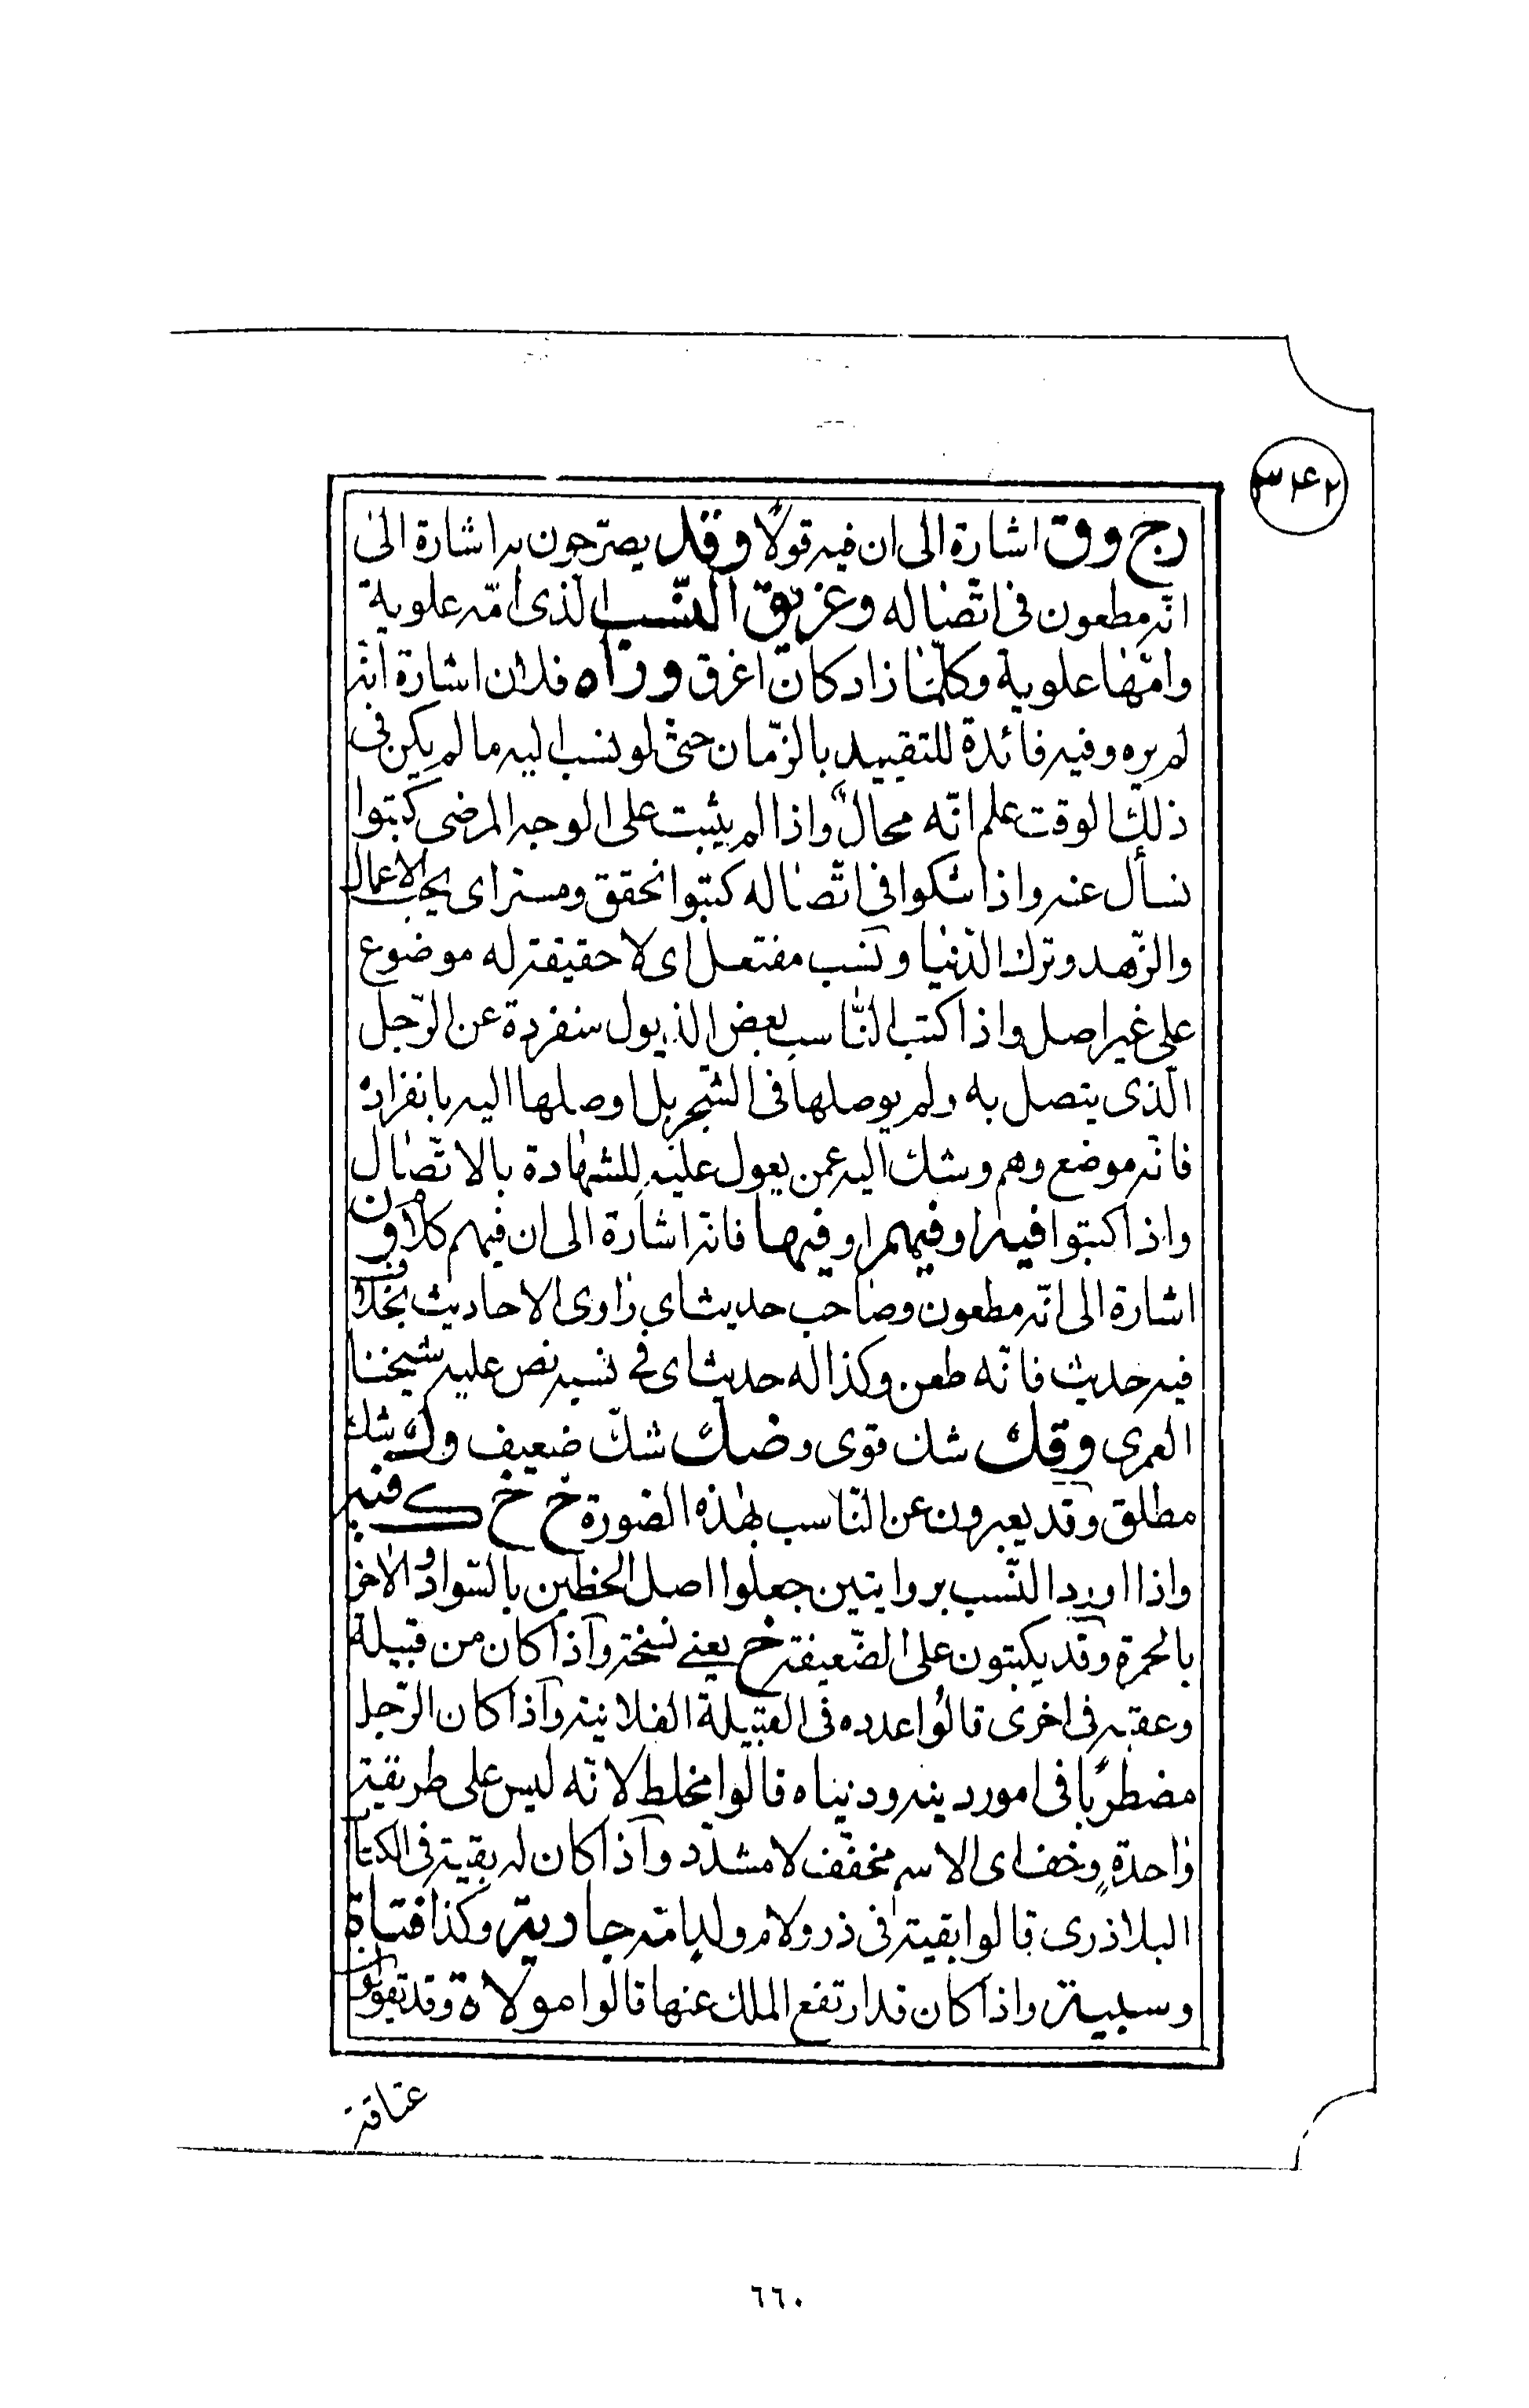 ٣٤٢
رج وق اشارة الى ان فيه قولاً وقد يصرّحون به اشارة الى
انّه مطعون فى اتّصاله وعريق النّسب الذى امّه علوية
وامّها علوية وكلّما زاد كان اغرق ورآه فلان اشارة انّه
لم يره وفيه فائدة للتقييد بالزّمان حتى لو نسب اليه ما لم يكن فى
ذلك الوقت علم انّه محالٌ واذا لم يثبت على الوجه المرضى كتبوا
نسأل عنه واذا شكوا فى اتّصاله كتبوا نحقق ومستر اى يحب الاعمال
والزّهد وترك الدّنيا ونسب مفتعل اى لا حقيقة له موضوع
على غير اصل واذا كتب النّاسب بعض الذيول منفردة عن الرّجل
الّذى يتصل به ولم يوصلها فى الشّجر بل اوصلها اليه بانفراده
فانّه موضع وهم وشك اليه عمن يعول عليه للشهادة بالاتّصال
واذا كتبوا فيه او فيهم او فيها فانه اشارة الى ان فيهم كلام ون
اشارة الى انّه مطعون وصاحب حديث اى راوى الاحاديث بخلاف
فيه حديث فانّه طعن وكذا له حديث اى فى نسبه نص عليه شيخنا
العمرى وقك شك قوى وضك شكّ ضعيف وك شك
مطلق وقد يعبرون عن النّاسب بهذه الصّورة خ خ ك فنبه
واذا اورد النّسب بروايتين جعلوا اصل الخطّين بالسّواد والاخر
بالحمرة وقد يكتبون على الضّعيفة خ يعنى نسخة واذا كان من قبيلة
وعقبه فى اخرى قالوا عدده فى القبيلة الفلانية واذا كان الرّجل
مضطربًا فى امور دينه ودنياه قالوا مخلط لانّه ليس على طريقة
واحدةٍ وخف اى الاسم مخفّف لا مشدّد واذا كان له بقية فى الكتاب
البلاذرى قالوا بقيته فى ذر ولام ولد امة جارية وكذا فتاة
وسبية واذا كان قد ارتفع الملك عنها قالوا مولاة وقد يقولون
عتاقة
٦٦٠